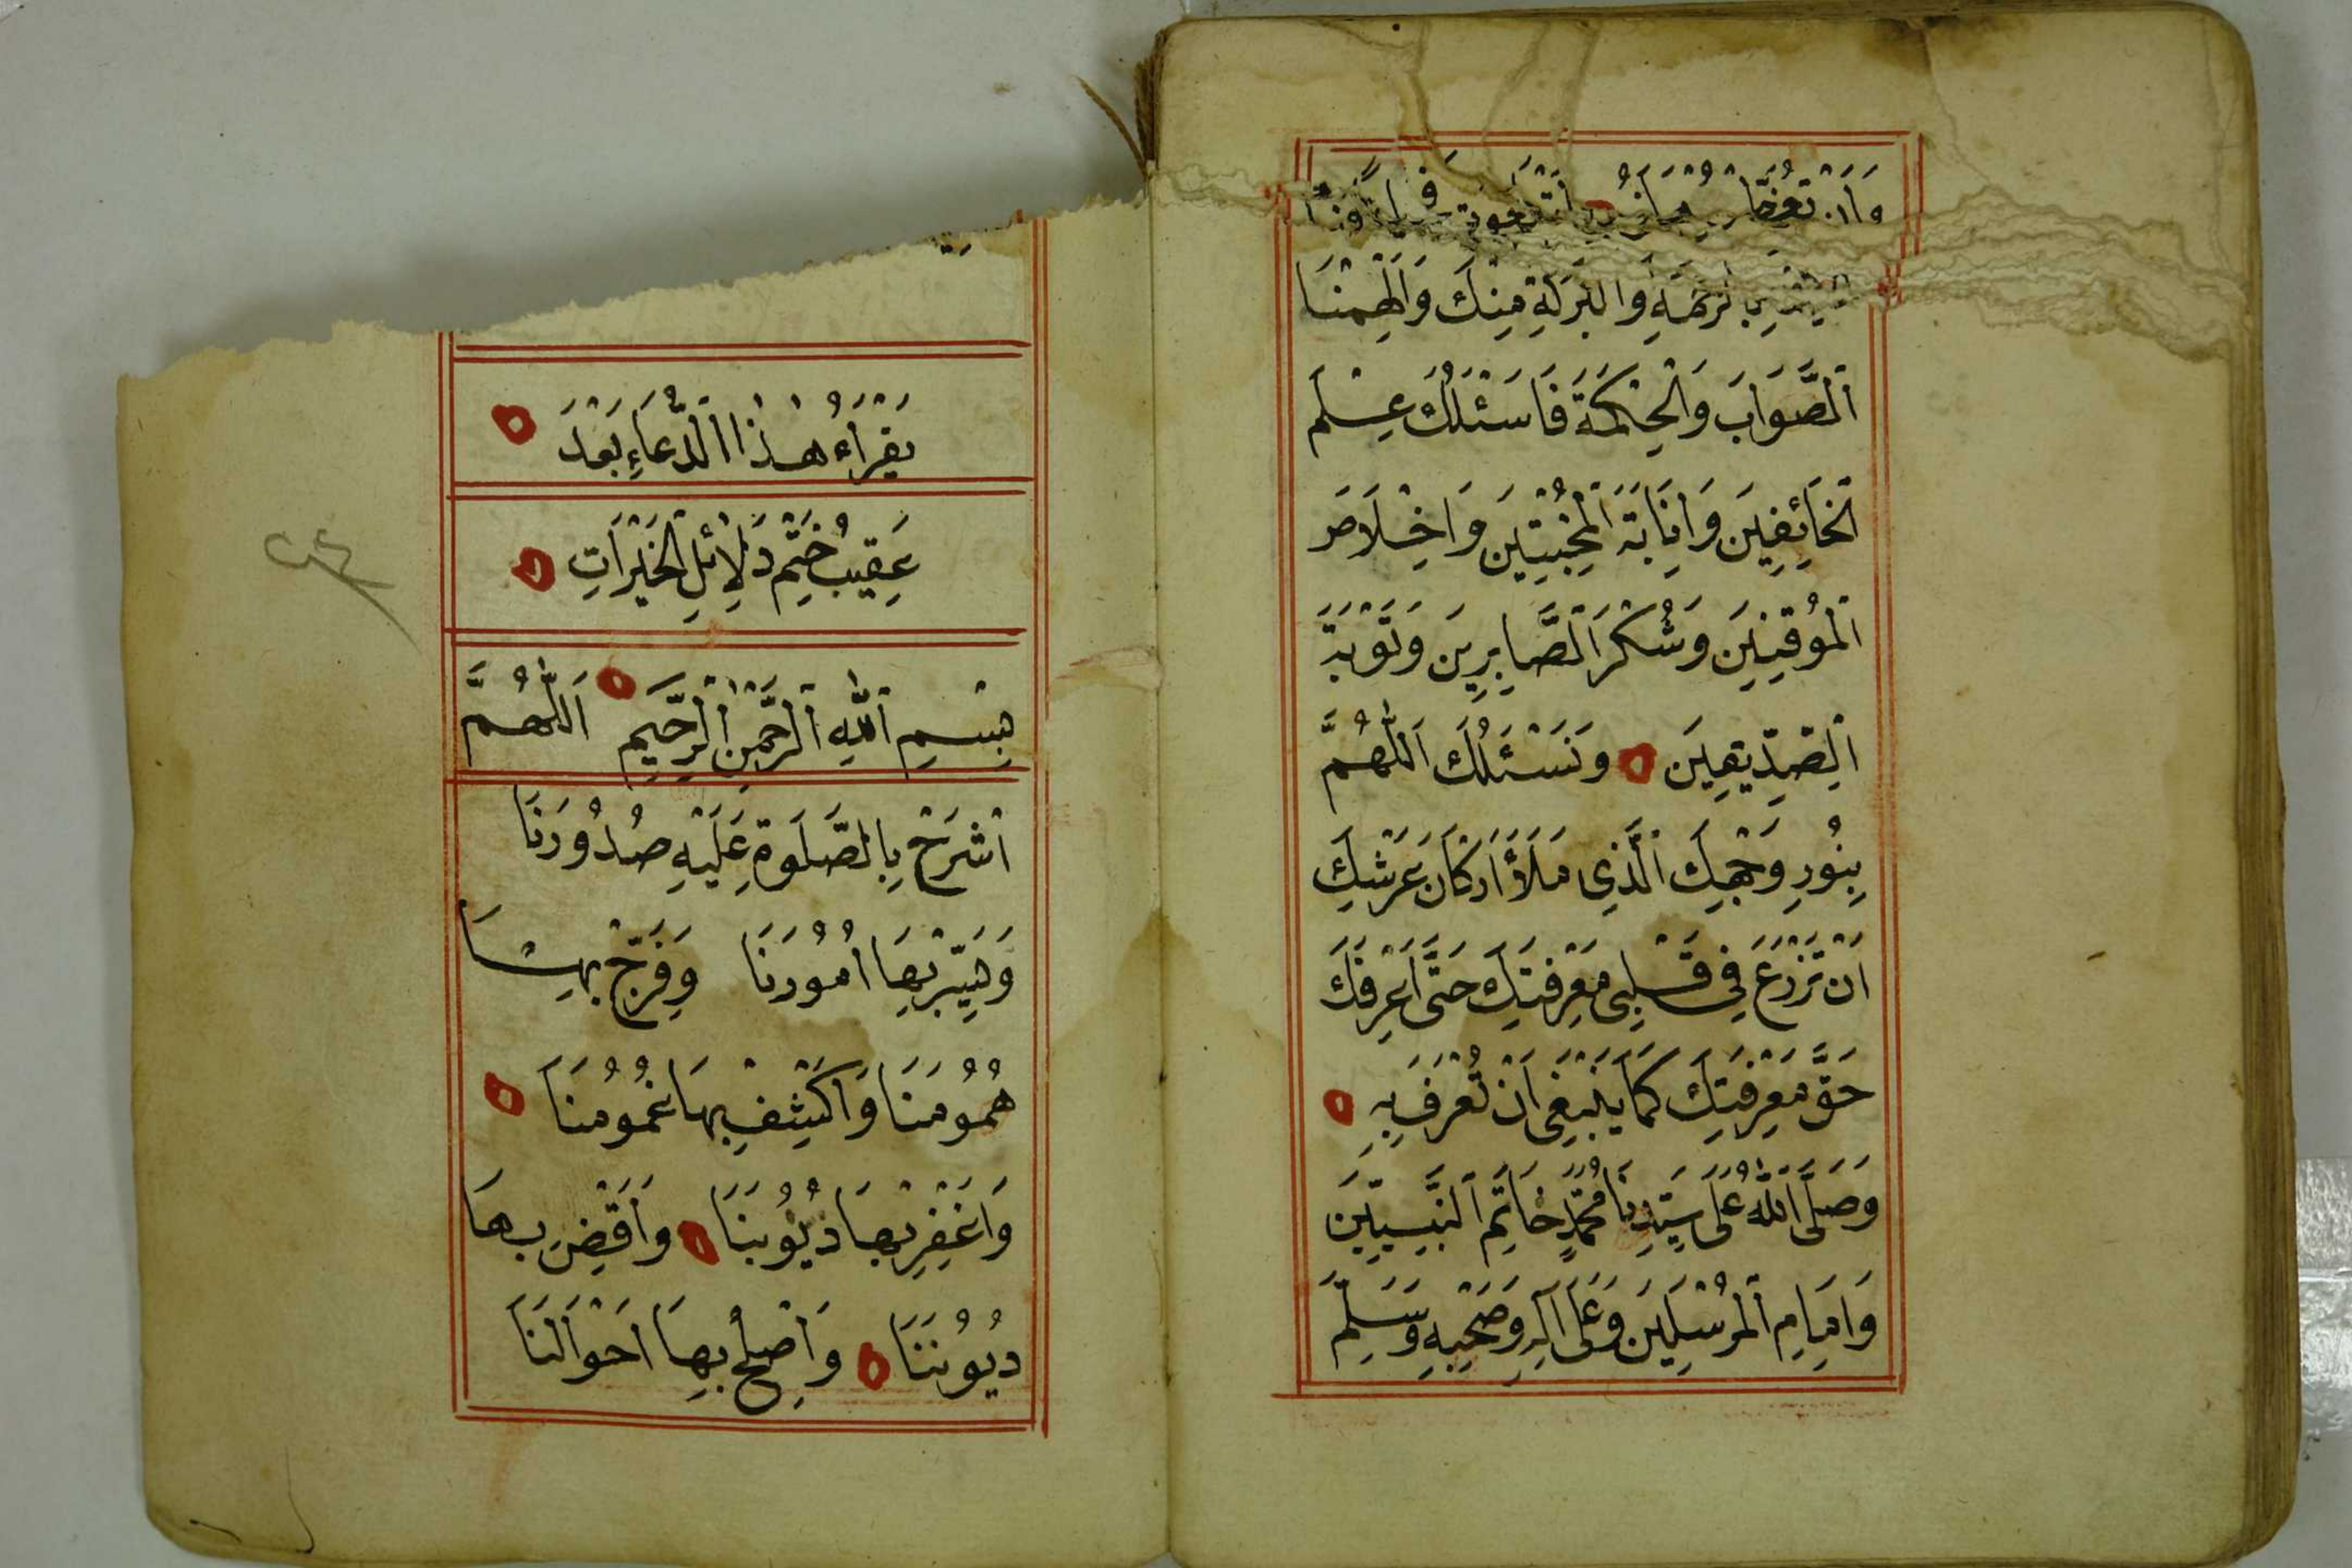 بِالرَّحْمَةِ وَالْبَرَكَةِ مِنْكَ وَاَلْهِمْنَا
الصَّوَابَ وَالْحِكْمَةَ فَاَسْئَلُكَ عِلْمَ
الْخَائِفِينَ وَاِنَابَةَ الْمُخْبِتِينَ وَاِخْلَاصَ
الْمُوقِنِينَ وَشُكْرَ الصَّابِرِينَ وَتَوْبَةَ
الصِّدِّيقِينَ وَنَسْئَلُكَ اَللّٰهُمَّ
بِنُورِ وَجْهِكَ الَّذِى مَلَأَ اَرْكَانَ عَرْشِكَ
اَنْ تَزْرَعَ فِى قَلْبِى مَعْرِفَتَكَ حَتَّى اَعْرِفَكَ
حَقَّ مَعْرِفَتِكَ كَمَا يَنْبَغِى اَنْ تُعْرَفَ بِهِ
وَصَلَّى اللّٰهُ عَلَى سَيِّدِنَا مُحَمَّدٍ خَاتِمِ النَّبِيِّينَ
وَاِمَامِ الْمُرْسَلِينَ وَعَلَى اٰلِهِ وَصَحْبِهِ وَسَلَّمَ
يَقْرَاءُ هٰذَا الدُّعَاءِ بَعْدَ
عَقِيبُ خَتْمِ دَلَائِلِ الْخَيْرَاتِ
بِسْمِ اللّٰهِ الرَّحْمٰنِ الرَّحِيمِ اَللّٰهُمَّ
اشْرَحْ بِالصَّلَوةِ عَلَيْهِ صُدُورَنَا
وَيَسِّرْ بِهَا اُمُورَنَا وَفَرِّجْ بِهَا
هُمُومَنَا وَاكْشِفْ بِهَا غُمُومَنَا
وَاغْفِرْ بِهَا ذُيُوبَنَا وَاَقْضِ بِهَا
دُيُونَنَا وَاَصْلِحْ بِهَا اَحْوَالَنَا